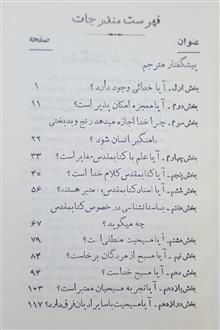 فهرست مندرجات
عنوان
صفحه
پیشگفتار مترجم
بخش اول ـ آیا خدائی وجود دارد؟ ۱
بخش دوم ـ آیا معجزه امکان پذیر است؟ ۱۱
بخش سوم ـ چرا خدا اجازه میدهد رنج و بدبختی
دامنگیر انسان شود؟ ۲۲
بخش چهارم ـ آیا علم با کتابمقدس مغایر است؟ ۳۳
بخش پنجم ـ آیا کتابمقدس کلام خدا است؟ ۴۰
بخش ششم ـ آیا اسناد کتابمقدس معتبر هستند؟ ۵۶
بخش هفتم ـ باستانشناسی در خصوص کتابمقدس
چه میگوید؟ ۶۷
بخش هشتم ـ آیا مسیحیت منطقی است؟ ۷۹
بخش نهم ـ آیا مسیح از مردگان برخاست؟ ۸۴
بخش دهم ـ آیا مسیح خداست؟ ۹۴
بخش یازدهم ـ آیا تجربه مسیحیان معتبر است؟ ۱۰۳
بخش دوازدهم ـ آیا مسیحیت با سایر ادیان فرق دارد؟ ۱۱۷